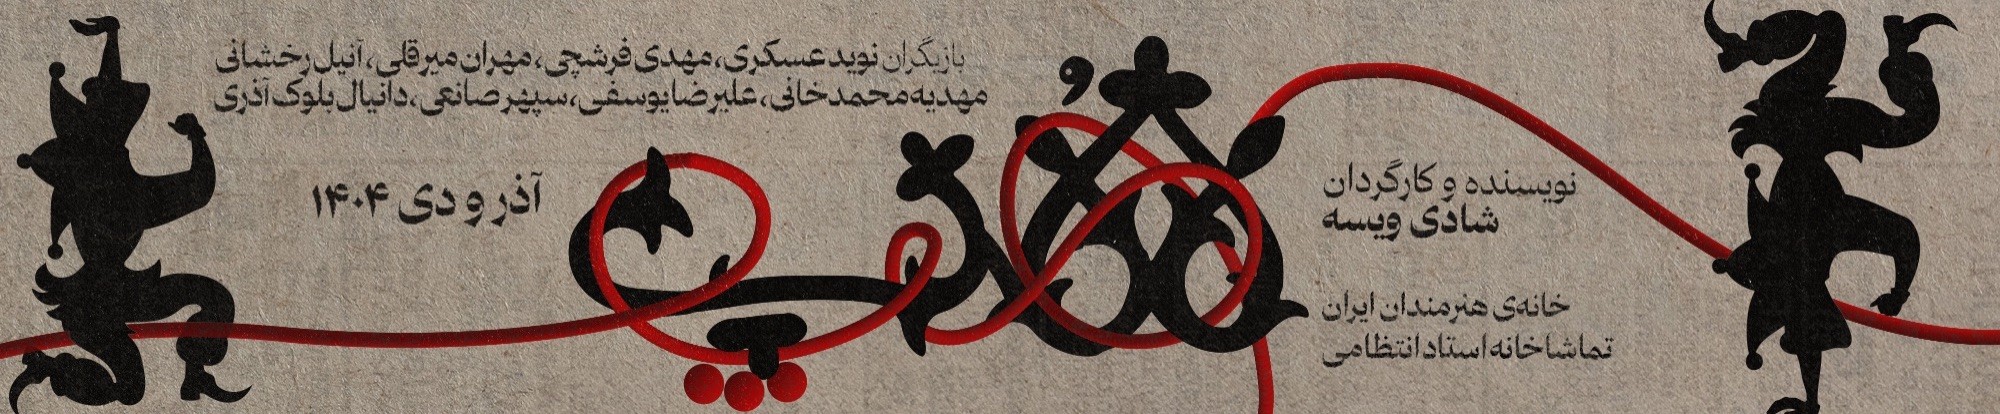 بازیگران نوید عسکری، مهدی فرشچی، مهران میرقلی، آنیل رخشانی
مهدیه محمدخانی، علیرضا یوسفی، سپهر صانعی، دانیال بلوک آذری
نویسنده و کارگردان
شادی ویسه
آذر و دی ۱۴۰۴
خانه‌ی هنرمندان ایران
تماشاخانه استاد انتظامی